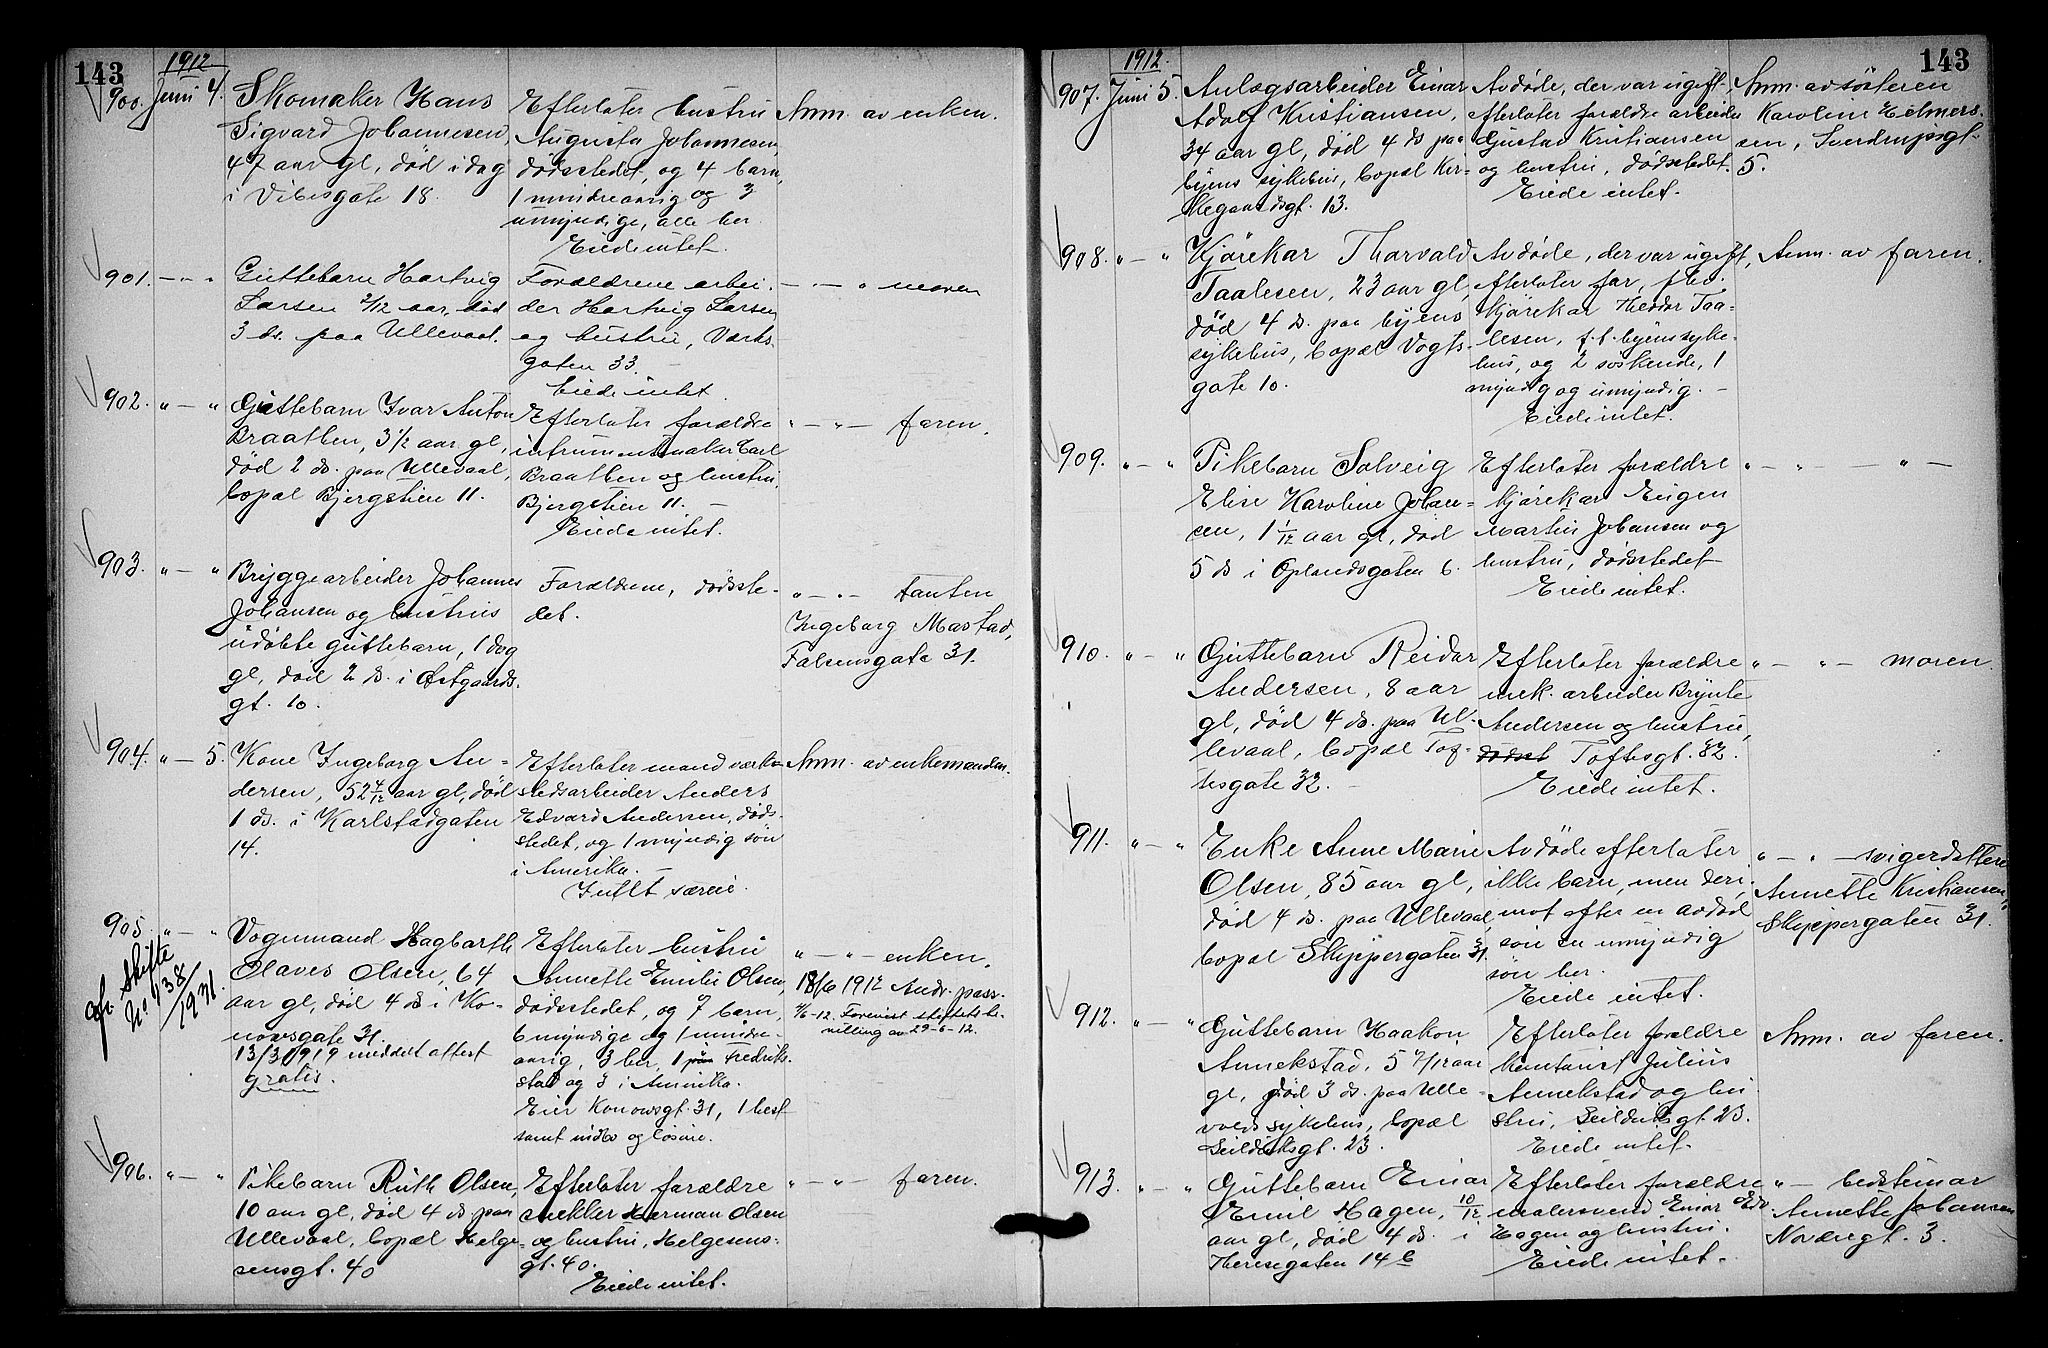 143
1912
900. Juni 4.
Skomaker Hans
Sigvard Johannesen,
47 aar gl, död idag
i Vibesgate 18.
Efterlater hustru
Augusta Johannesen,
dödsstedet, og 4 barn,
1 mindreaarig og 3
umyndige, alle her.
Eiede intet.
Anm. av enken.
901. — " "
Guttebarn Hartvig
Larsen 2/12 aar, död
3 ds. paa Ullevaal.
Forældrene arbei-
der Hartvig Larsen
og hustru, Verks-
gaten 33.
Eiede intet.
— " — " moren
902. " — "
Guttebarn Ivar Anton
Braathen, 3 1/2 aar gl,
död 2 ds. paa Ullevaal,
bopæl Bjergstien 11.
Efterlater forældre
intrumentmaker Carl
Braathen og hustru,
Bjergstien 11. —
Eiede intet.
" — " — faren.
903. " — "
Bryggearbeider Johannes
Johansen og hustrus
udöbte guttebarn, 1 dag
gl, död 2 ds. i Östgaards-
gt. 10.
Forældrene, dödsste-
det.
" — " — tanten
Ingeborg Mastad,
Falsensgate 31.
904. " — 5.
Kone Ingeborg An-
dersen, 52 4/12 aar gl, död
1 ds. i Karlstadgaten
14.
Efterlater mand verk-
stedsarbeider Anders
Edvard Andersen, döds-
stedet, og 1 myndig sön
i Amerika. —
Intet særeie.
Anm. av enkemanden.
905. " — "
cfr. Skifte
No. 438/1931.
Vognmand Hagbarth
Olaves Olsen, 64
aar gl, död 4 ds i Ko-
nowsgate 31.
13/3 1919 meddelt attest
gratis.
Efterlater hustru
Annette Emilie Olsen,
dödsstedet, og 7 barn,
6 myndige og 1 mindre-
aarig, 3 her, 1 Fredrik-
stad og 3 i Amerika.
Eier Konowsgt. 31, 1 hest
samt indbo og lösöre.
" — " — enken.
18/6 1912 Andr. pass.
4/6-12. Forevist skiftets be-
villing av 29-6-12.
906. " — "
Pikebarn Ruth Olsen,
10 aar gl, död 4 ds paa
Ullevaal, bopæl Helge-
sensgt. 40
Efterlater forældre
snekker Herman Olsen
og hustru, Helgesens-
gt. 40.
Eiede intet.
" — " — faren.
143
1912.
907. Juni 5.
Anlægsarbeider Einar
Adolf Kristiansen,
34 aar gl, död 4 ds paa
byens sykehus, bopæl Kir-
kegaardsgt. 13.
Avdöde, der var ugift,
efterlater forældre arbeider
Gustav Kristiansen
og hustru, dödsstedet.
Eiede intet.
Anm. av sösteren
Karoline Helmers-
sen, Sverdrupsgt.
5.
908. " — "
Kjörekar Thorvald
Taalesen, 23 aar gl,
död 4 ds. paa byens
sykehus, bopæl Vogts-
gate 10.
Avdöde, der var ugift,
efterlater far, fhv.
kjörekar Heddar Taa-
lesen, f.t. byens syke-
hus, og 2 söskende, 1
myndig og umyndig. —
Eiede intet.
Anm. av faren.
909. " — "
Pikebarn Solveig
Elise Karoline Johan-
sen, 1 1/12 aar gl, död
5 ds i Oplandsgaten 6.
Efterlater forældre
kjörekar Eugen
Martin Johansen og
hustru, dödsstedet
Eiede intet.
" — " — " —
910. " — "
Guttebarn Reidar
Andersen, 8 aar
gl, död 4 ds. paa Ul-
levaal, bopæl Tof-
tesgate 32. —
Efterlater forældre
mek. arbeider Brynte
Andersen og hustru,
dödset Toftesgt. 32.
Eiede intet.
" — " — moren.
911. " — "
Enke Anne Marie
Olsen, 85 aar gl,
död 4 ds. paa Ullevaal,
bopæl Skippergaten 31.
Avdöde efterlater
ikke barn, men deri-
mot efter en avdöd
sön en umyndig
sön her.
Eiede intet.
" — " — svigerdatteren
Annette Kristiansen,
Skippergaten 31.
912. " — "
Guttebarn Haakon
Annekstad, 5 7/12 aar
gl, död 3 ds. paa Ulle-
vaals sykehus, bopæl
Seilduksgt. 23.
Efterlater forældre
kontorist Julius
Annekstad og hu-
stru, Seilduksgt 23.
Eiede intet.
Anm. av faren.
913. " — "
Guttebarn Einar
Emil Hagen, 10/12
aar gl, död 4 ds. i
Theresegaten 14 c
Efterlater forældre
malersvend Einar Edv.
Hagen og hustru.
Eiede intet.
" — bedstemor
Annette Johansen
Nordregt. 3.